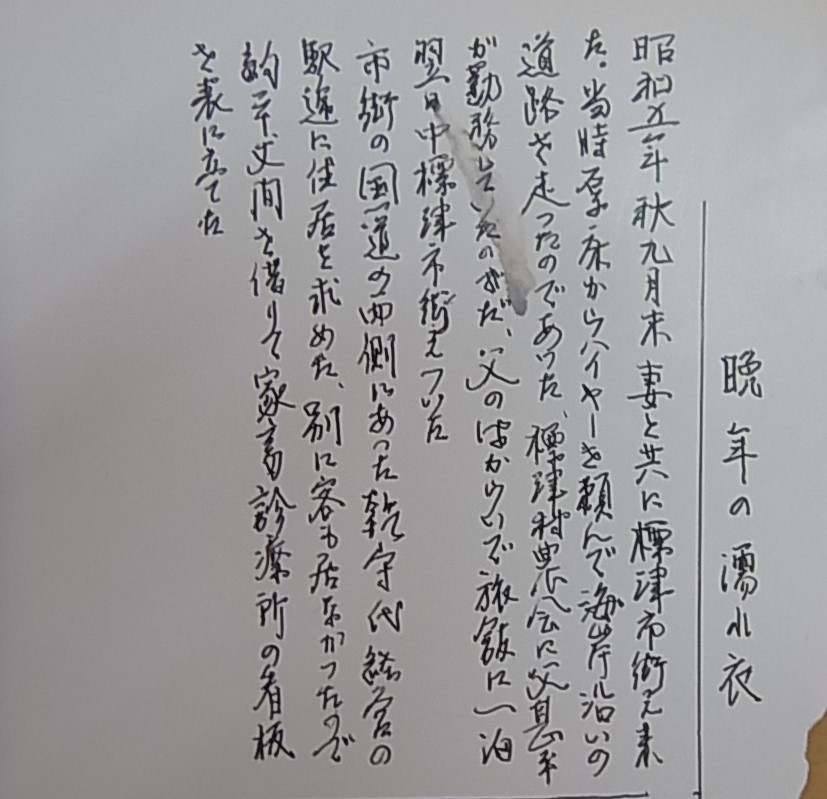 晩年の濡れ衣
昭和五年秋九月末妻と共に標津市街え来
た。当時厚床からハイヤーを頼んで海岸沿いの
道路を走ったのであった、標津村農会に父甚平
が勤務していたのだ、父のはからいで旅館に一泊
翌日中標津市街えついた
市街の国道の西側にあった 守代経営の
駅逓に住居を求めた、別に客も居なかったので
間を借りて家畜診療所の看板
を表に立てた